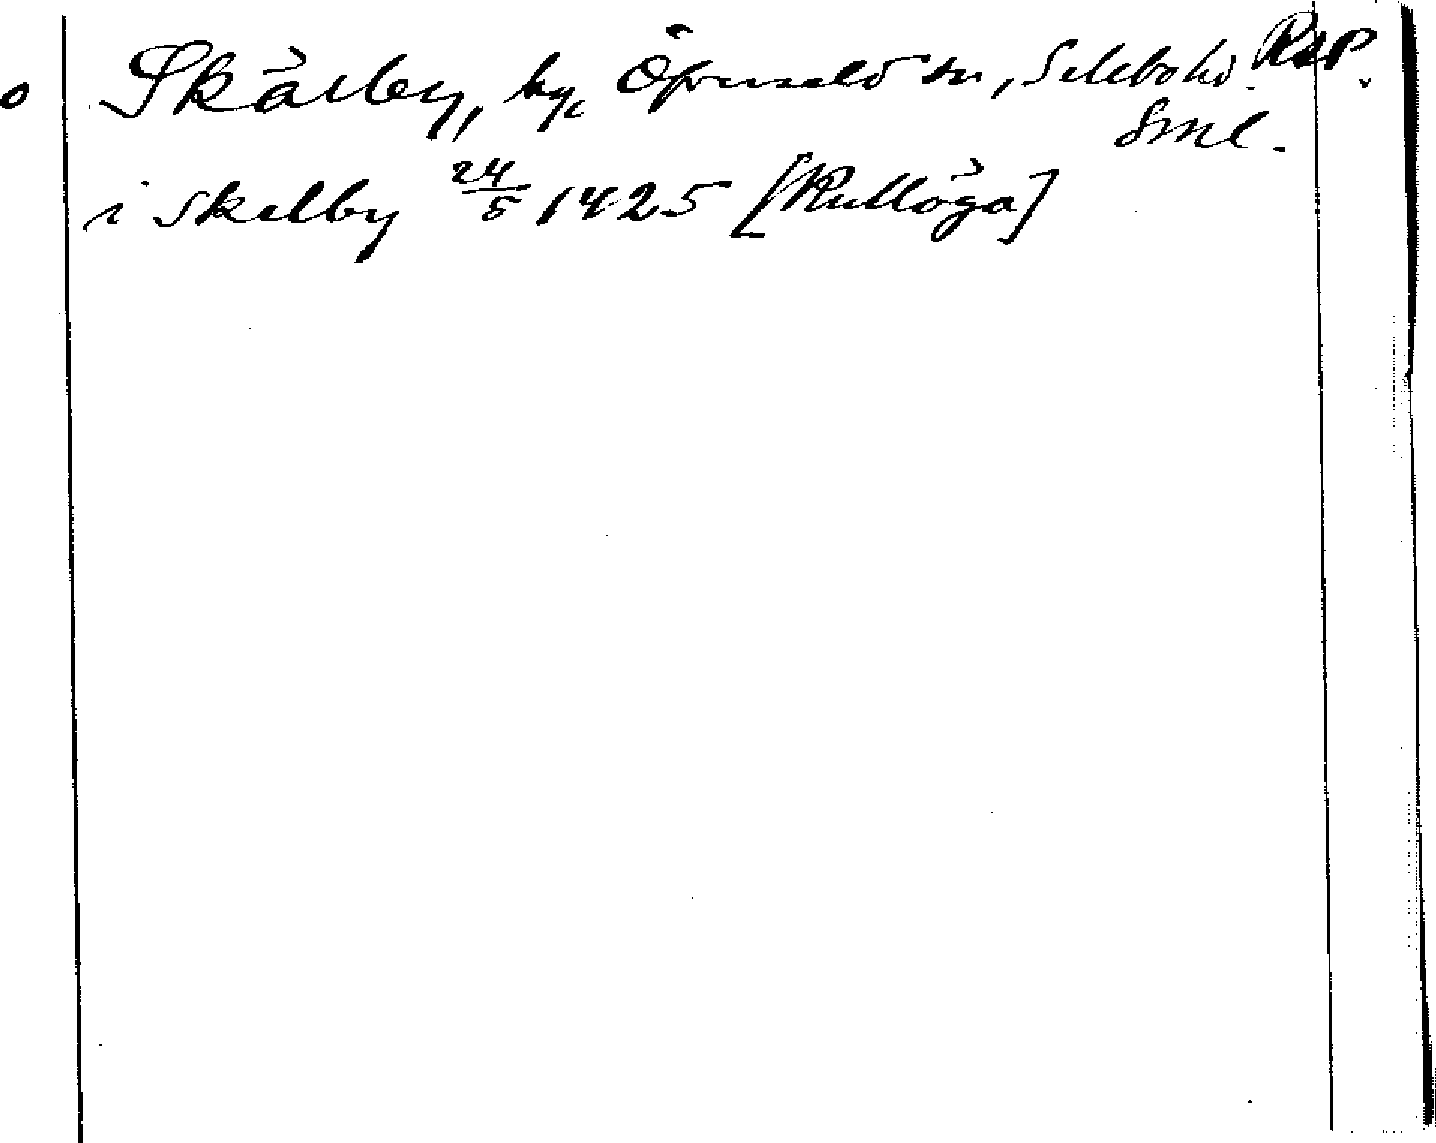 o Skälby, by, Öfverselö sn, Selebo hd. Rep.
Sml.
i Skelby 24/5 1425 [Kullöga]